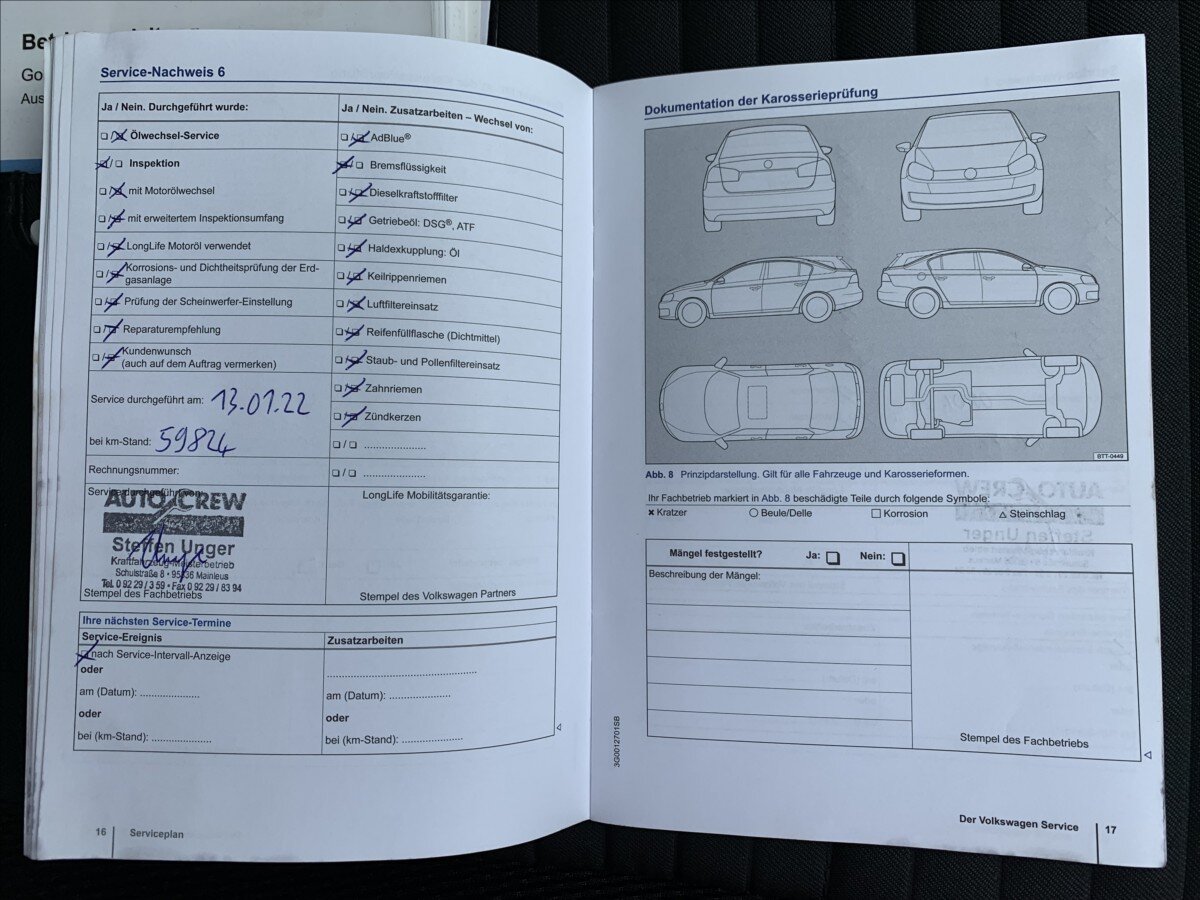 Go
Aus
Service-Nachweis 6
Ja / Nein. Durchgeführt wurde:
❏ /❏ Ölwechsel-Service
❏ /❏ Inspektion
❏ /❏ mit Motorölwechsel
❏ /❏ mit erweitertem Inspektionsumfang
❏ /❏ LongLife Motoröl verwendet
❏ /❏ Korrosions- und Dichtheitsprüfung der Erd-
gasanlage
❏ /❏ Prüfung der Scheinwerfer-Einstellung
❏ /❏ Reparaturempfehlung
❏ /❏ Kundenwunsch
(auch auf dem Auftrag vermerken)
Service durchgeführt am: 13.01.22
bei km-Stand: 59824
Rechnungsnummer:
Service durchgeführt von:
AUTO CREW
Steffen Unger
Kraftfahrzeug-Meisterbetrieb
Schulstraße 8 · 95336 Mainleus
Tel. 0 92 29 / 3 59 · Fax 0 92 29 / 83 94
Stempel des Fachbetriebs
Ja / Nein. Zusatzarbeiten – Wechsel von:
❏ /❏ AdBlue®
❏ /❏ Bremsflüssigkeit
❏ /❏ Dieselkraftstofffilter
❏ /❏ Getriebeöl: DSG®, ATF
❏ /❏ Haldexkupplung: Öl
❏ /❏ Keilrippenriemen
❏ /❏ Luftfiltereinsatz
❏ /❏ Reifenfüllflasche (Dichtmittel)
❏ /❏ Staub- und Pollenfiltereinsatz
❏ /❏ Zahnriemen
❏ /❏ Zündkerzen
❏ / ❏ .....................
❏ / ❏ .....................
LongLife Mobilitätsgarantie:
Stempel des Volkswagen Partners
Ihre nächsten Service-Termine
Service-Ereignis
❏ nach Service-Intervall-Anzeige
oder
am (Datum): ....................
oder
bei (km-Stand): ....................
Zusatzarbeiten
..................................................
am (Datum): ....................
oder
bei (km-Stand): ....................
16
Serviceplan
Dokumentation der Karosserieprüfung
BTT-0449
Abb. 8 Prinzipdarstellung. Gilt für alle Fahrzeuge und Karosserieformen.
Ihr Fachbetrieb markiert in Abb. 8 beschädigte Teile durch folgende Symbole:
× Kratzer ○ Beule/Delle □ Korrosion △ Steinschlag
Mängel festgestellt? Ja: ❏ Nein: ❏
Beschreibung der Mängel:
Stempel des Fachbetriebs
3G0012701SB
Der Volkswagen Service
17